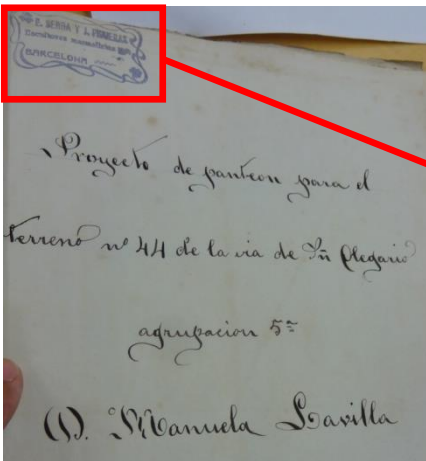 E. SERRA Y L.
Escultores marmolistas
BARCELONA
Proyecto de panteon para el
terreno nº 44 de la via de Sn Olegario
agrupacion 5ª
D. Manuela Lavilla